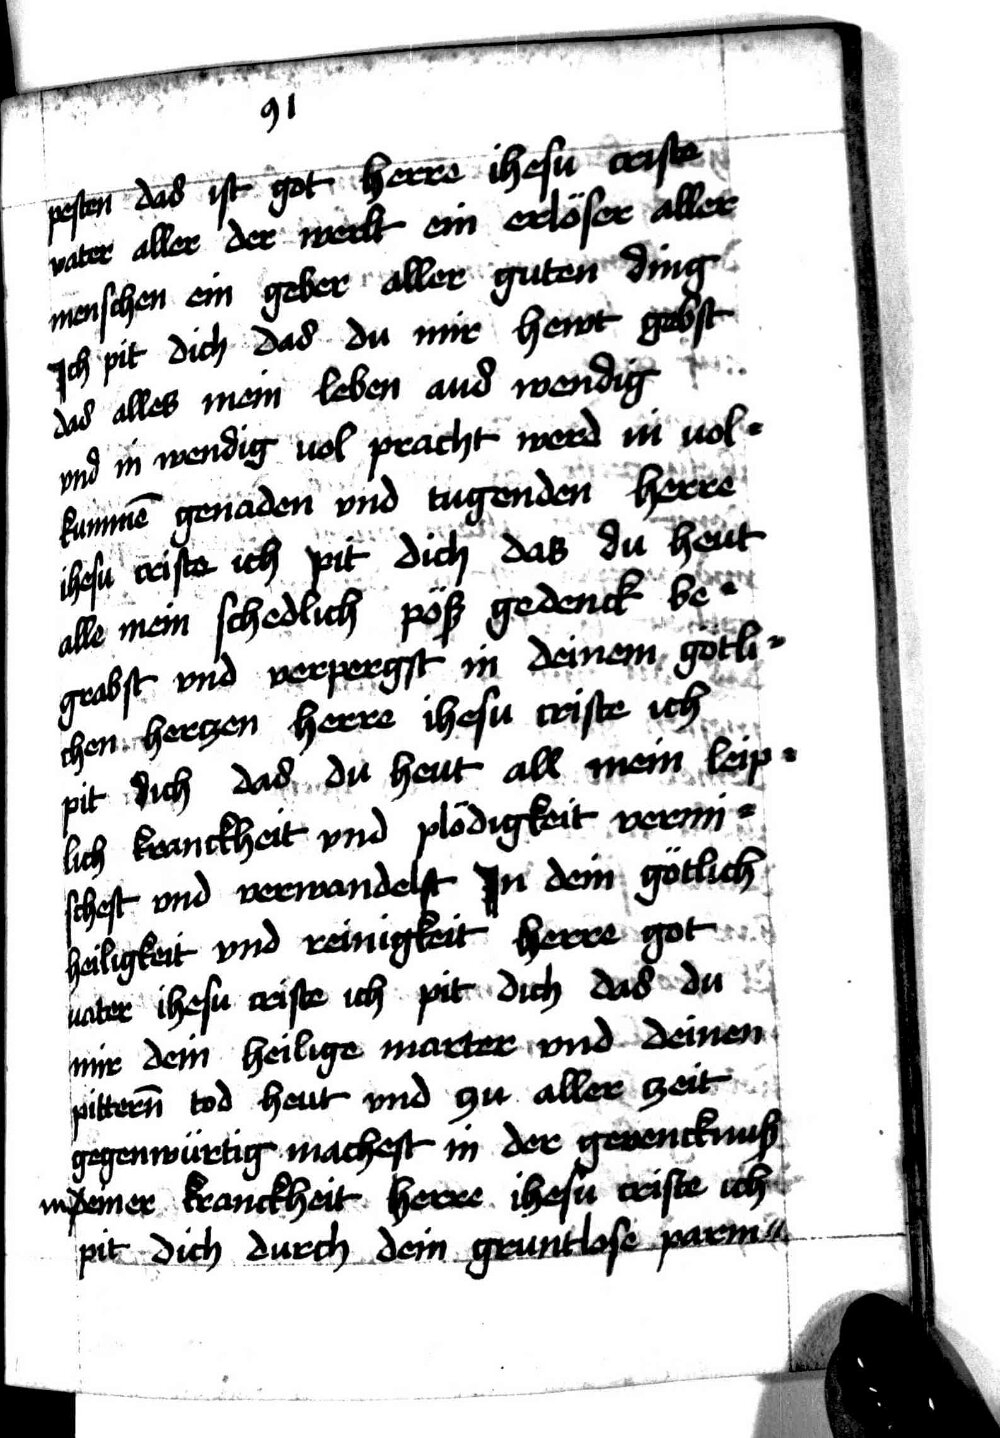 91
pesten das ist got herre ihesu criste
vater aller der werlt ein erlöser aller
menschen ein geber aller guten ding
Ich pit dich das du mir hewt gebst
das alles mein leben aus wendig
vnd in wendig uol pracht werd in uol=
kummē genaden vnd tugenden herre
ihesu criste ich pit dich das du heut
alle mein schedlich pöß gedenck be=
grabst vnd verpergst in deinem götli=
chen hertzen herre ihesu criste ich
pit dich das du heut all mein leip=
lich kranckheit vnd plödigkeit vermi=
schest vnd verwandelst In dein götlich
heiligkeit vnd reinigkeit herre got
uater ihesu criste ich pit dich das du
mir dein heilige marter vnd deinen
pittern̄ tod heut vnd zu aller zeit
gegenwürtig machest in der gevencknuß
meiner kranckheit herre ihesu criste ich
pit dich durch dein gruntlose parm=